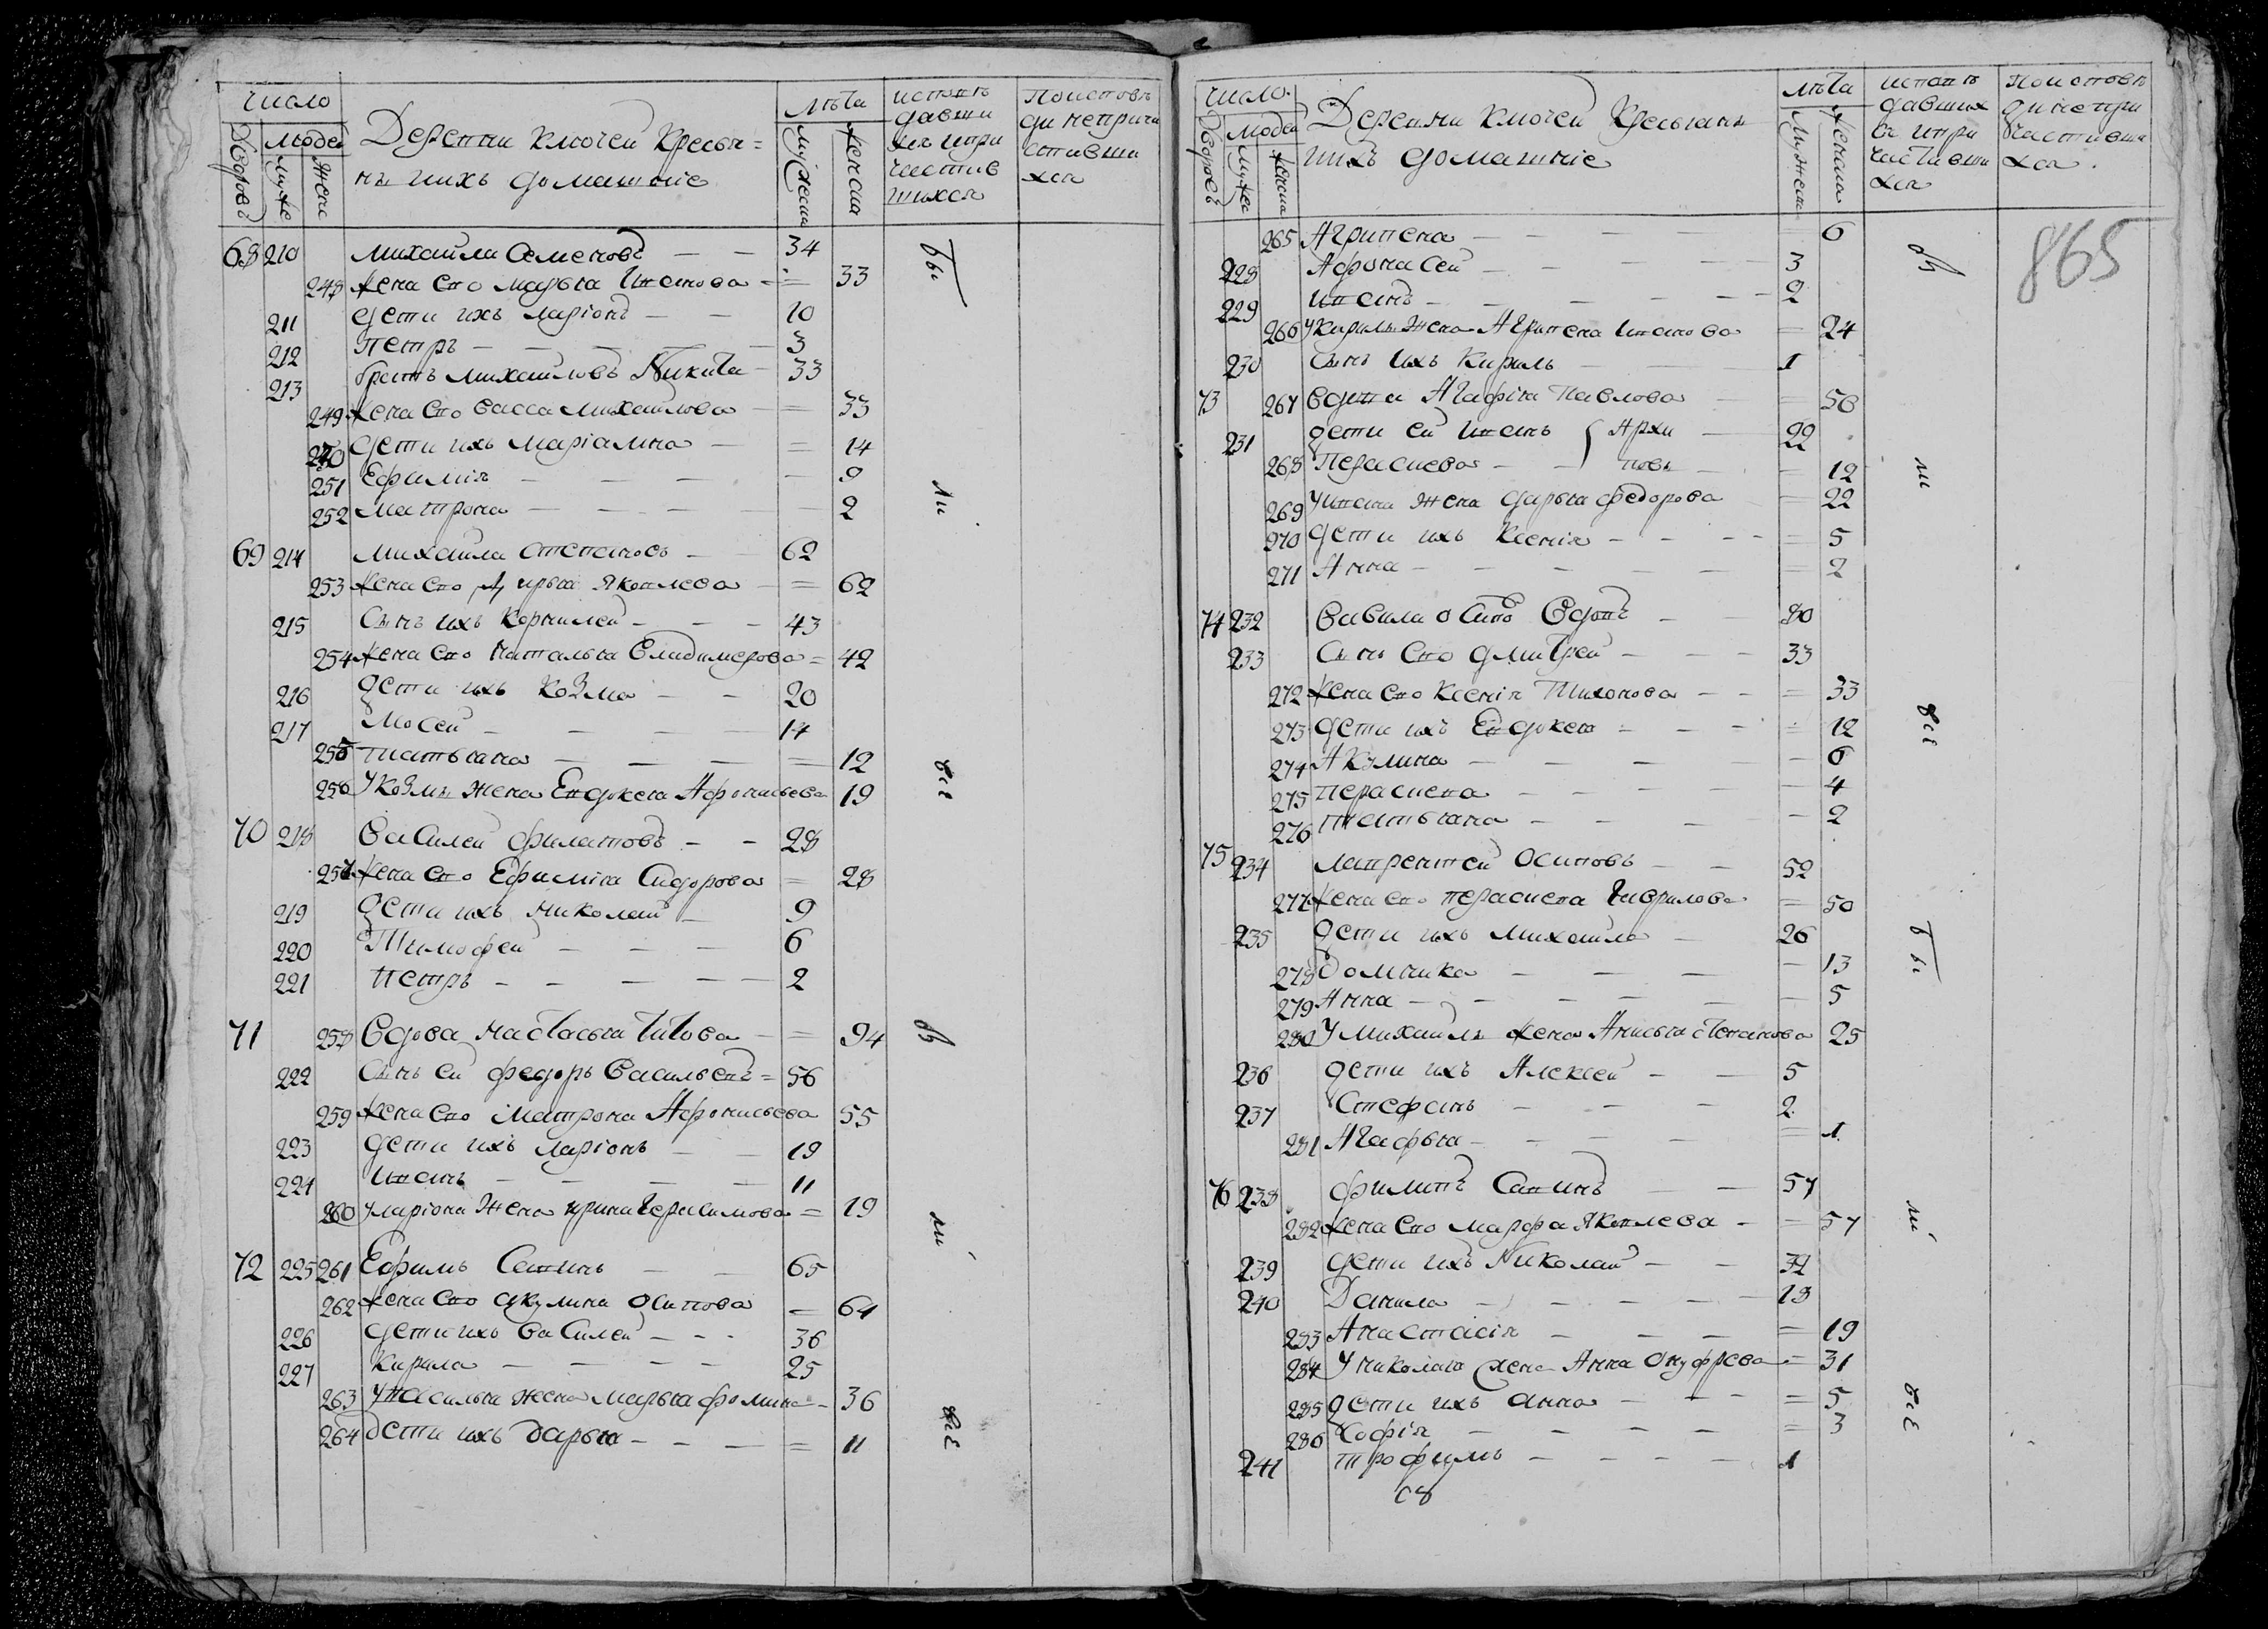 Число
Людей
Деревни Ключей Кресья=
нъ иихъ домашніе
Лѣта
испове
давши
хся ипри
частив
шихся
По исповѣ
ди неприча
стивши
хся
Дворовъ
Муже
Жен
Мужеска
Женска
68 210 Михайла Семеновъ — — 34
248 Жена Ево Марья Иванова = 33
211 Дети ихъ Ларіонъ — — 10
212 Петръ — — 3
213 братъ михаиловъ Никита — 33
249 Жена Ево Васса Михаилова = 33
250 Дети ихъ Маріамна — = 14
251 Ефимія — — — 9
252 Матрона — — — 2
69 214 Михаила Степановъ — 62
253 Жена Ево Дарья Яковлева = 62
215 Сынъ ихъ Корнилей — — 43
254 Жена Ево Наталья Владимерова = 42
216 Дети ихъ Козма — — 20
217 Мосей — — — 14
255 Татьяна — — — = 12
256 У Козмы жена Евдокея Афонасьева 19
70 218 Василей Филатовъ — — 28
257 Жена Ево Ефимія Сидорова = 28
219 Дети ихъ Николай — 9
220 Тимофей — — — 6
221 Петръ — — — 2
71 258 Вдова Настасья Титова — = 94
222 Сынъ ей Федоръ Васильевъ = 56
259 Жена Ево Матрона Афонасьева 55
223 Дети ихъ Ларіонъ — — 19
224 Иванъ — — — 11
260 У Ларіона Жена ирина Герасимова = 19
72 225 261 Ефимъ Савинъ — — 65
262 Жена Ево Акулина Осипова = 64
226 Дети ихъ Василей — — 36
227 Кирила — — — 25
263 У Василья жена Марья Фомина — 36
264 Дети ихъ Дарья — — = 11
бы
ли
всѣ
въ
ли
всѣ
Число
Людей
Деревни Ключей Кресьяны
иихъ домашніе
Лѣта
испов
давших
ся ипри
частивши
хся
По исповѣ
ди непри
частивши
хся
Дворовъ
Муже
Женска
Мужеска
Женска
865
265 Агрипена — — — — 6
228 Афонасей — — — 3
229 Иванъ — — — — 2
266 У Кирилы Жена Агрипена Иванова = 24
230 Сынъ ихъ Кирилъ — — 1
73 267 Вдова Агафія Павлова — = 56
231 Дети ей Иванъ { Архи — 22
268 Парасковя — — повы — = 12
269 У ивана жена Дарья Федорова = 22
270 Дети ихъ Ксенія — — — = 5
271 Анна — — — — = 2
74 232 Вавила Осиповъ Вдовъ — 80
233 Сынъ Ево Дмитрей — — 33
272 Жена Ево Ксенія Тихонова — = 33
273 Дети ихъ Евдокея — — = 12
274 Акулина — — — 6
275 Парасковя — — — 4
276 Татьяна — — — 2
75 234 Лаврентей Осиповъ — — 52
277 Жена Ево Парасковя Гаврилова = 50
235 Дети ихъ Михайла — 26
278 Домника — — — 13
279 Анна — — — — 5
280 У Михаилы Жена Анисья Степанова 25
236 Дети ихъ Алексей — — 5
237 Стефанъ — — 2
281 Агафья — — — = 1
76 238 Филипъ Савинъ — — 57
282 Жена Ево Марфа Яковлева — = 57
239 Дети ихъ Николай — — 32
240 Данила — — — 18
283 Анастасія — — — = 19
284 У Николая Жена Анна Онуфрева = 31
285 Дети ихъ Анна — — = 5
286 Софія — — — = 3
241 Трофимъ — — — 1
въ
ли
всѣ
бы
ли
всѣ